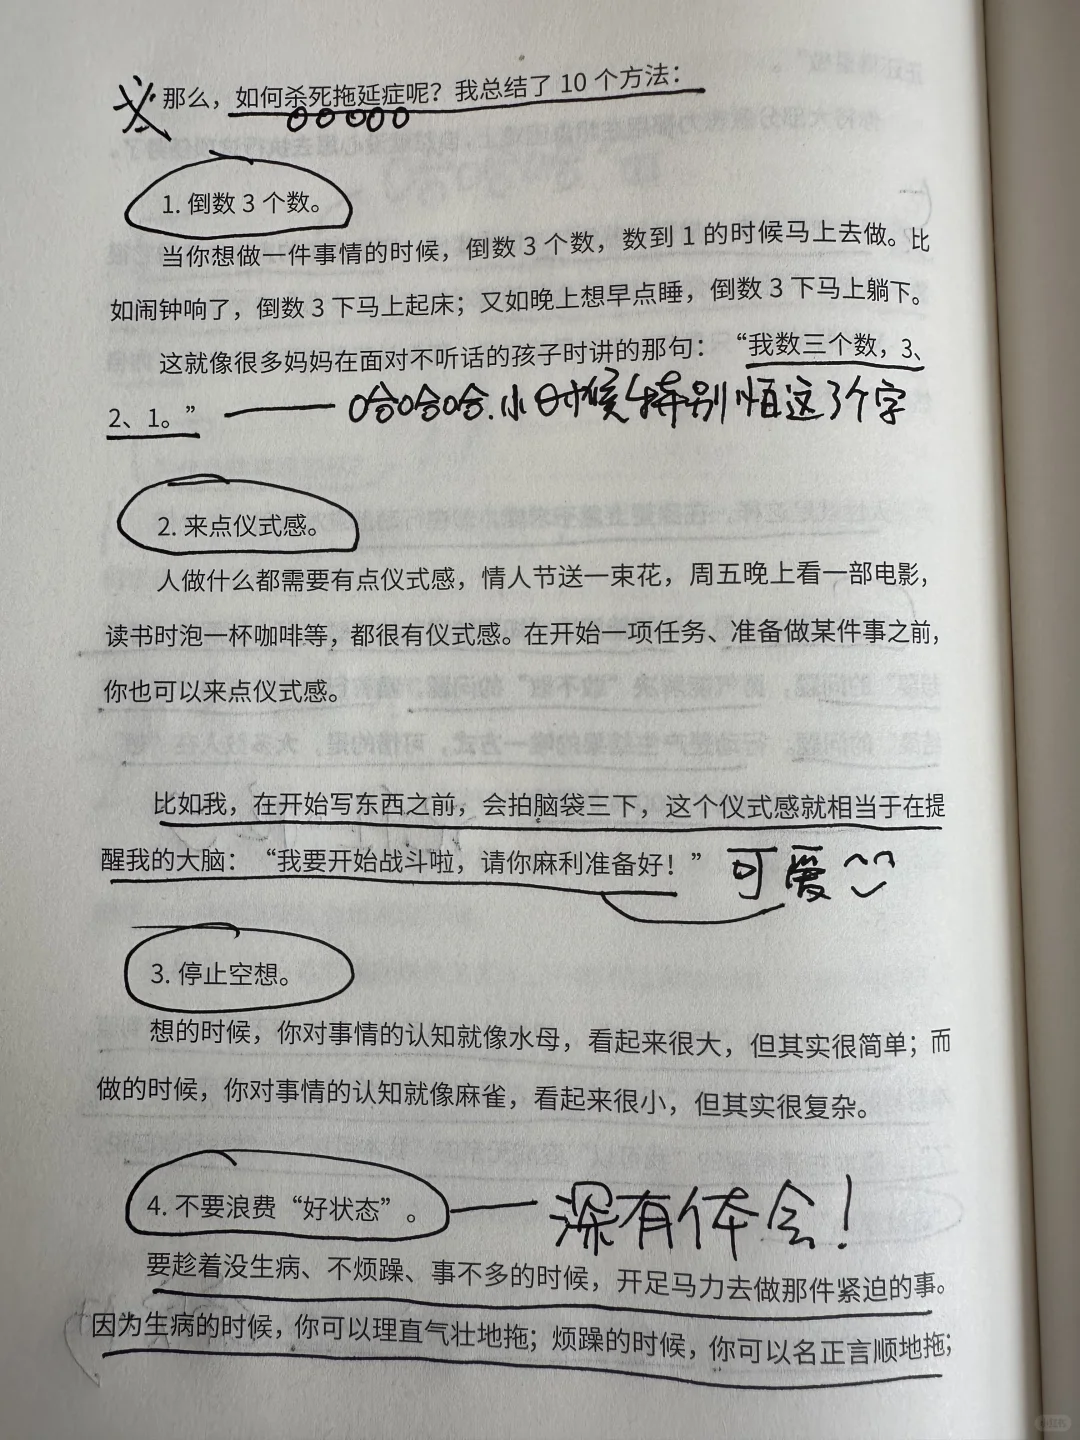 那么，如何杀死拖延症呢？我总结了 10 个方法：
1. 倒数 3 个数。
当你想做一件事情的时候，倒数 3 个数，数到 1 的时候马上去做。比
如闹钟响了，倒数 3 下马上起床；又如晚上想早点睡，倒数 3 下马上躺下。
这就像很多妈妈在面对不听话的孩子时讲的那句：“我数三个数，3、
2、1。” 哈哈哈.小时候特别怕这3个字
2. 来点仪式感。
人做什么都需要有点仪式感，情人节送一束花，周五晚上看一部电影，
读书时泡一杯咖啡等，都很有仪式感。在开始一项任务、准备做某件事之前，
你也可以来点仪式感。
比如我，在开始写东西之前，会拍脑袋三下，这个仪式感就相当于在提
醒我的大脑：“我要开始战斗啦，请你麻利准备好！” 可爱
3. 停止空想。
想的时候，你对事情的认知就像水母，看起来很大，但其实很简单；而
做的时候，你对事情的认知就像麻雀，看起来很小，但其实很复杂。
4. 不要浪费“好状态”。 深有体会！
要趁着没生病、不烦躁、事不多的时候，开足马力去做那件紧迫的事。
因为生病的时候，你可以理直气壮地拖；烦躁的时候，你可以名正言顺地拖；